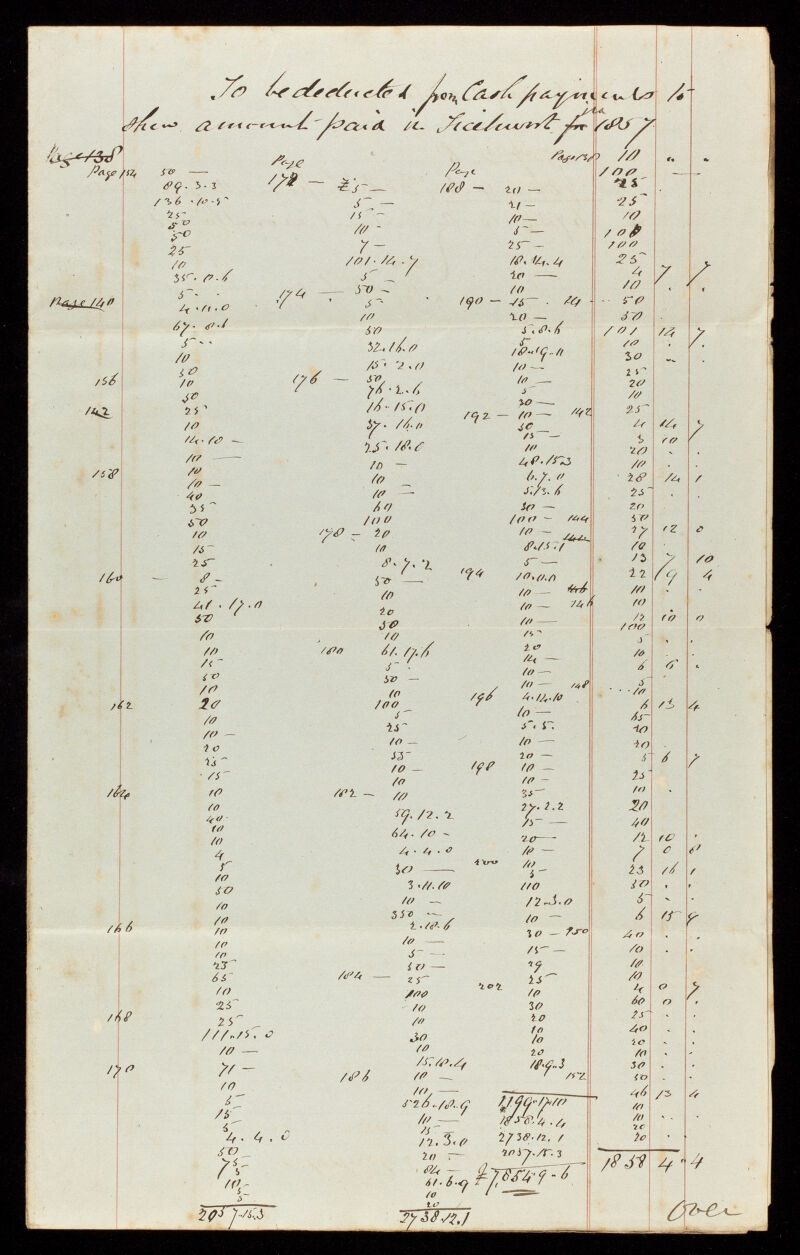 To be deducted from Cash payments to
shew amount paid in Ticehurst for 1857
Page 138
Page 154
50 —
89. 3. 3
136. 10. 5
25
50
50
25
10
35. 0. 6
5 . .
Page 140
4. 11. 0
67. 8. 6
5 . .
10
50
156
10
50
142
25
10
14. 10 —
10 —
158
10
10 —
40
35
50
10
15
25
160 — 8 —
25
41. 17. 0
50
10
10
15
50
10
162
20
10
10 —
20
25
15
164
10
10
40
10
10
4
5
10
50
10
10
166
10
10
10
25
65
10
25
168
25
111. 15. 0
10 —
170
71 —
10
5
15
5
4. 4. 0
50 —
75
5
10
5
2057. 15. 3
Page
172 — £5 —
5 —
15 —
10 —
7 —
101. 14. 7
5
174 — 50 —
5
10
50
32. 16. 0
15. 2. 0
176 — 50
76. 2. 6
16. 15. 0
37. 16. 0
25. 18. 0
10 —
10
10 —
60
100
178 — 20
10
8. 7. 2
50 —
10
20
50
10
180 61. 17. 6
5
50 —
10
100
5
25
10 —
55
10 —
10
182 — 10
59. 12. 2
64. 10 —
4. 4. 0
30 —
3. 11. 10
10 —
350 —
2. 18. 6
10 —
5 —
50 —
184 — 25
100
10
10
30
10
15. 18. 4
186 10 —
10 —
526. 18. 9
10 —
15 —
12. 3. 0
20 —
84 —
61. 6. 9
10
20
2738. 12. 1
Page
188 — 20 —
21 —
10 —
5 —
25 —
18. 14. 4
20 —
10
190 — 15 . 14
20 —
5. 8. 6
5
18. 19. 11
10 —
10 —
5
30 —
192 — 10 — 142
50
15 —
10
48. 15. 3
6. 7. 0
5. 13. 6
30 —
100 — 144
10 —
144
8. 15. 1
5 —
194 10. 0. 0
10 — 146
10 — 146
10 —
15
20
14 —
10 —
10 — 148
196 4. 14. 10
10 —
5. 5.
10 —
20 —
198 10 —
10 —
35
27. 2. 2
15 —
20 —
10 —
200 10
5 —
110
12. 3. 0
10 —
30 — 150
15 —
29
25
202 10
30
20
10
10
20
18. 9. 3
152
1199. 17. 10
1858. 4. 4
2738. 12. 1
2057. 15. 3
£7,854 9. 6
Page 138 10 " "
100 —
25
25
10
100
100
25
4 7 7
10 . .
50
50
101 14 7
10 . .
30
25
20
10
25
4 14 7
3 10
20 . .
10 .
28 14 1
25 . .
20
50
27 12 0
10
13 7 10
22 19 4
10 . .
10
12 10 0
100
5 . .
10
6 6 .
5
10
6 13 4
65
20
20
5 6 7
25
10 .
20
40
12 10 .
7 0 8
23 16 1
50 . .
5 . .
6 15 9
40 .
10 . .
10
10
4 0 7
60 0 .
25 . .
40 . .
20 . .
10 . .
30 . .
50 . .
46 13 4
10
10 . .
20
20 . .
1858 4. 4
Over